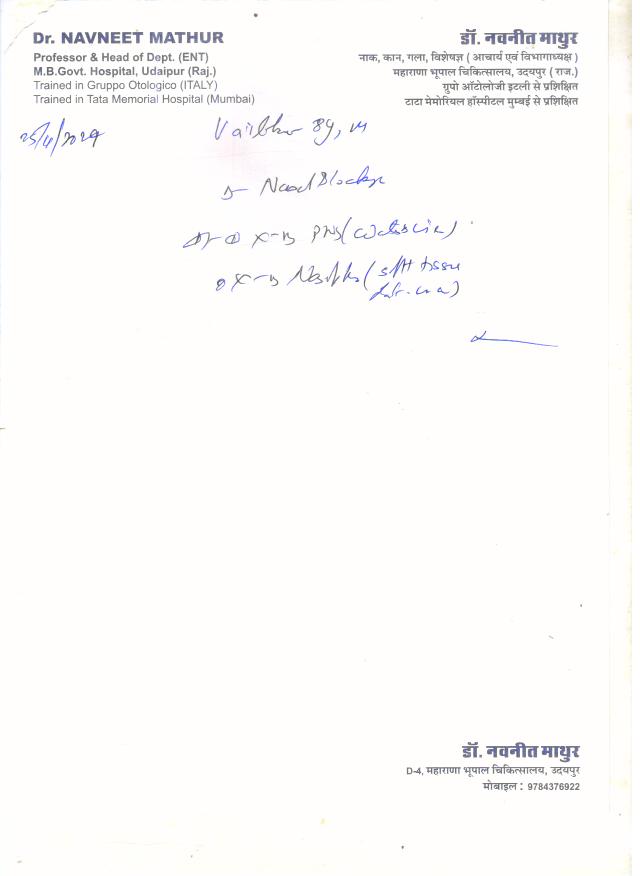 Dr. NAVNEET MATHUR
Professor & Head of Dept. (ENT)
M.B.Govt. Hospital, Udaipur (Raj.)
Trained in Gruppo Otologico (ITALY)
Trained in Tata Memorial Hospital (Mumbai)
डॉ. नवनीत माथुर
नाक, कान, गला, विशेषज्ञ ( आचार्य एवं विभागाध्यक्ष )
महाराणा भूपाल चिकित्सालय, उदयपुर ( राज.)
ग्रुपो ऑटोलोजी इटली से प्रशिक्षित
टाटा मेमोरियल हॉस्पीटल मुम्बई से प्रशिक्षित
25/4/2024
8y, M
Nasal Blockage
X-ray PNS (
X-ray (soft tissue
डॉ. नवनीत माथुर
D-4, महाराणा भूपाल चिकित्सालय, उदयपुर
मोबाइल : 9784376922